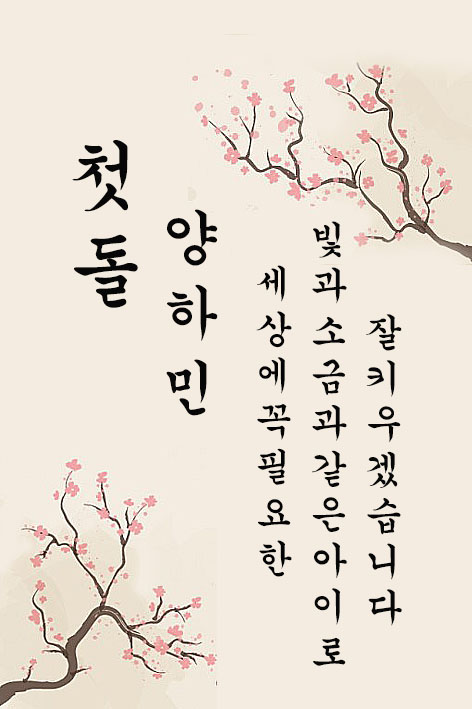 첫돌
양하민
세상에꼭필요한
빛과소금과같은아이로
잘키우겠습니다